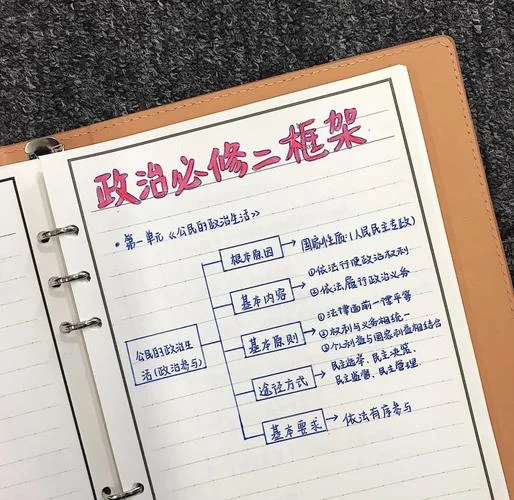 政治必修二框架
• 第一单元《公民的政治生活》
公民的政治生
活(政治参与)
根本原因
国家性质:(人民民主专政)
基本内容
①依法行使政治权利
②依法履行政治义务
基本原则
①法律面前一律平等
②权利与义务相统一
③个人利益与国家利益相结合
途径方式
民主选举、民主决策、
民主监督、民主管理
基本要求
依法有序参与